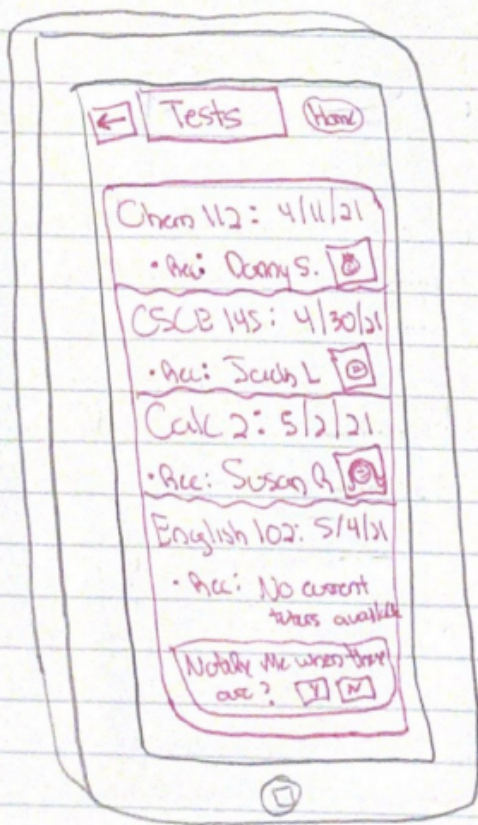 ← Tests Home
Chem 112: 4/11/21
• Rec: Danny S.
CSCE 145: 4/30/21
• Rec: L
Calc 2: 5/2/21
• Rec: Susan R
English 102: 5/4/21
• Rec: No current
tutors available
Notify Me when there
are? Y N